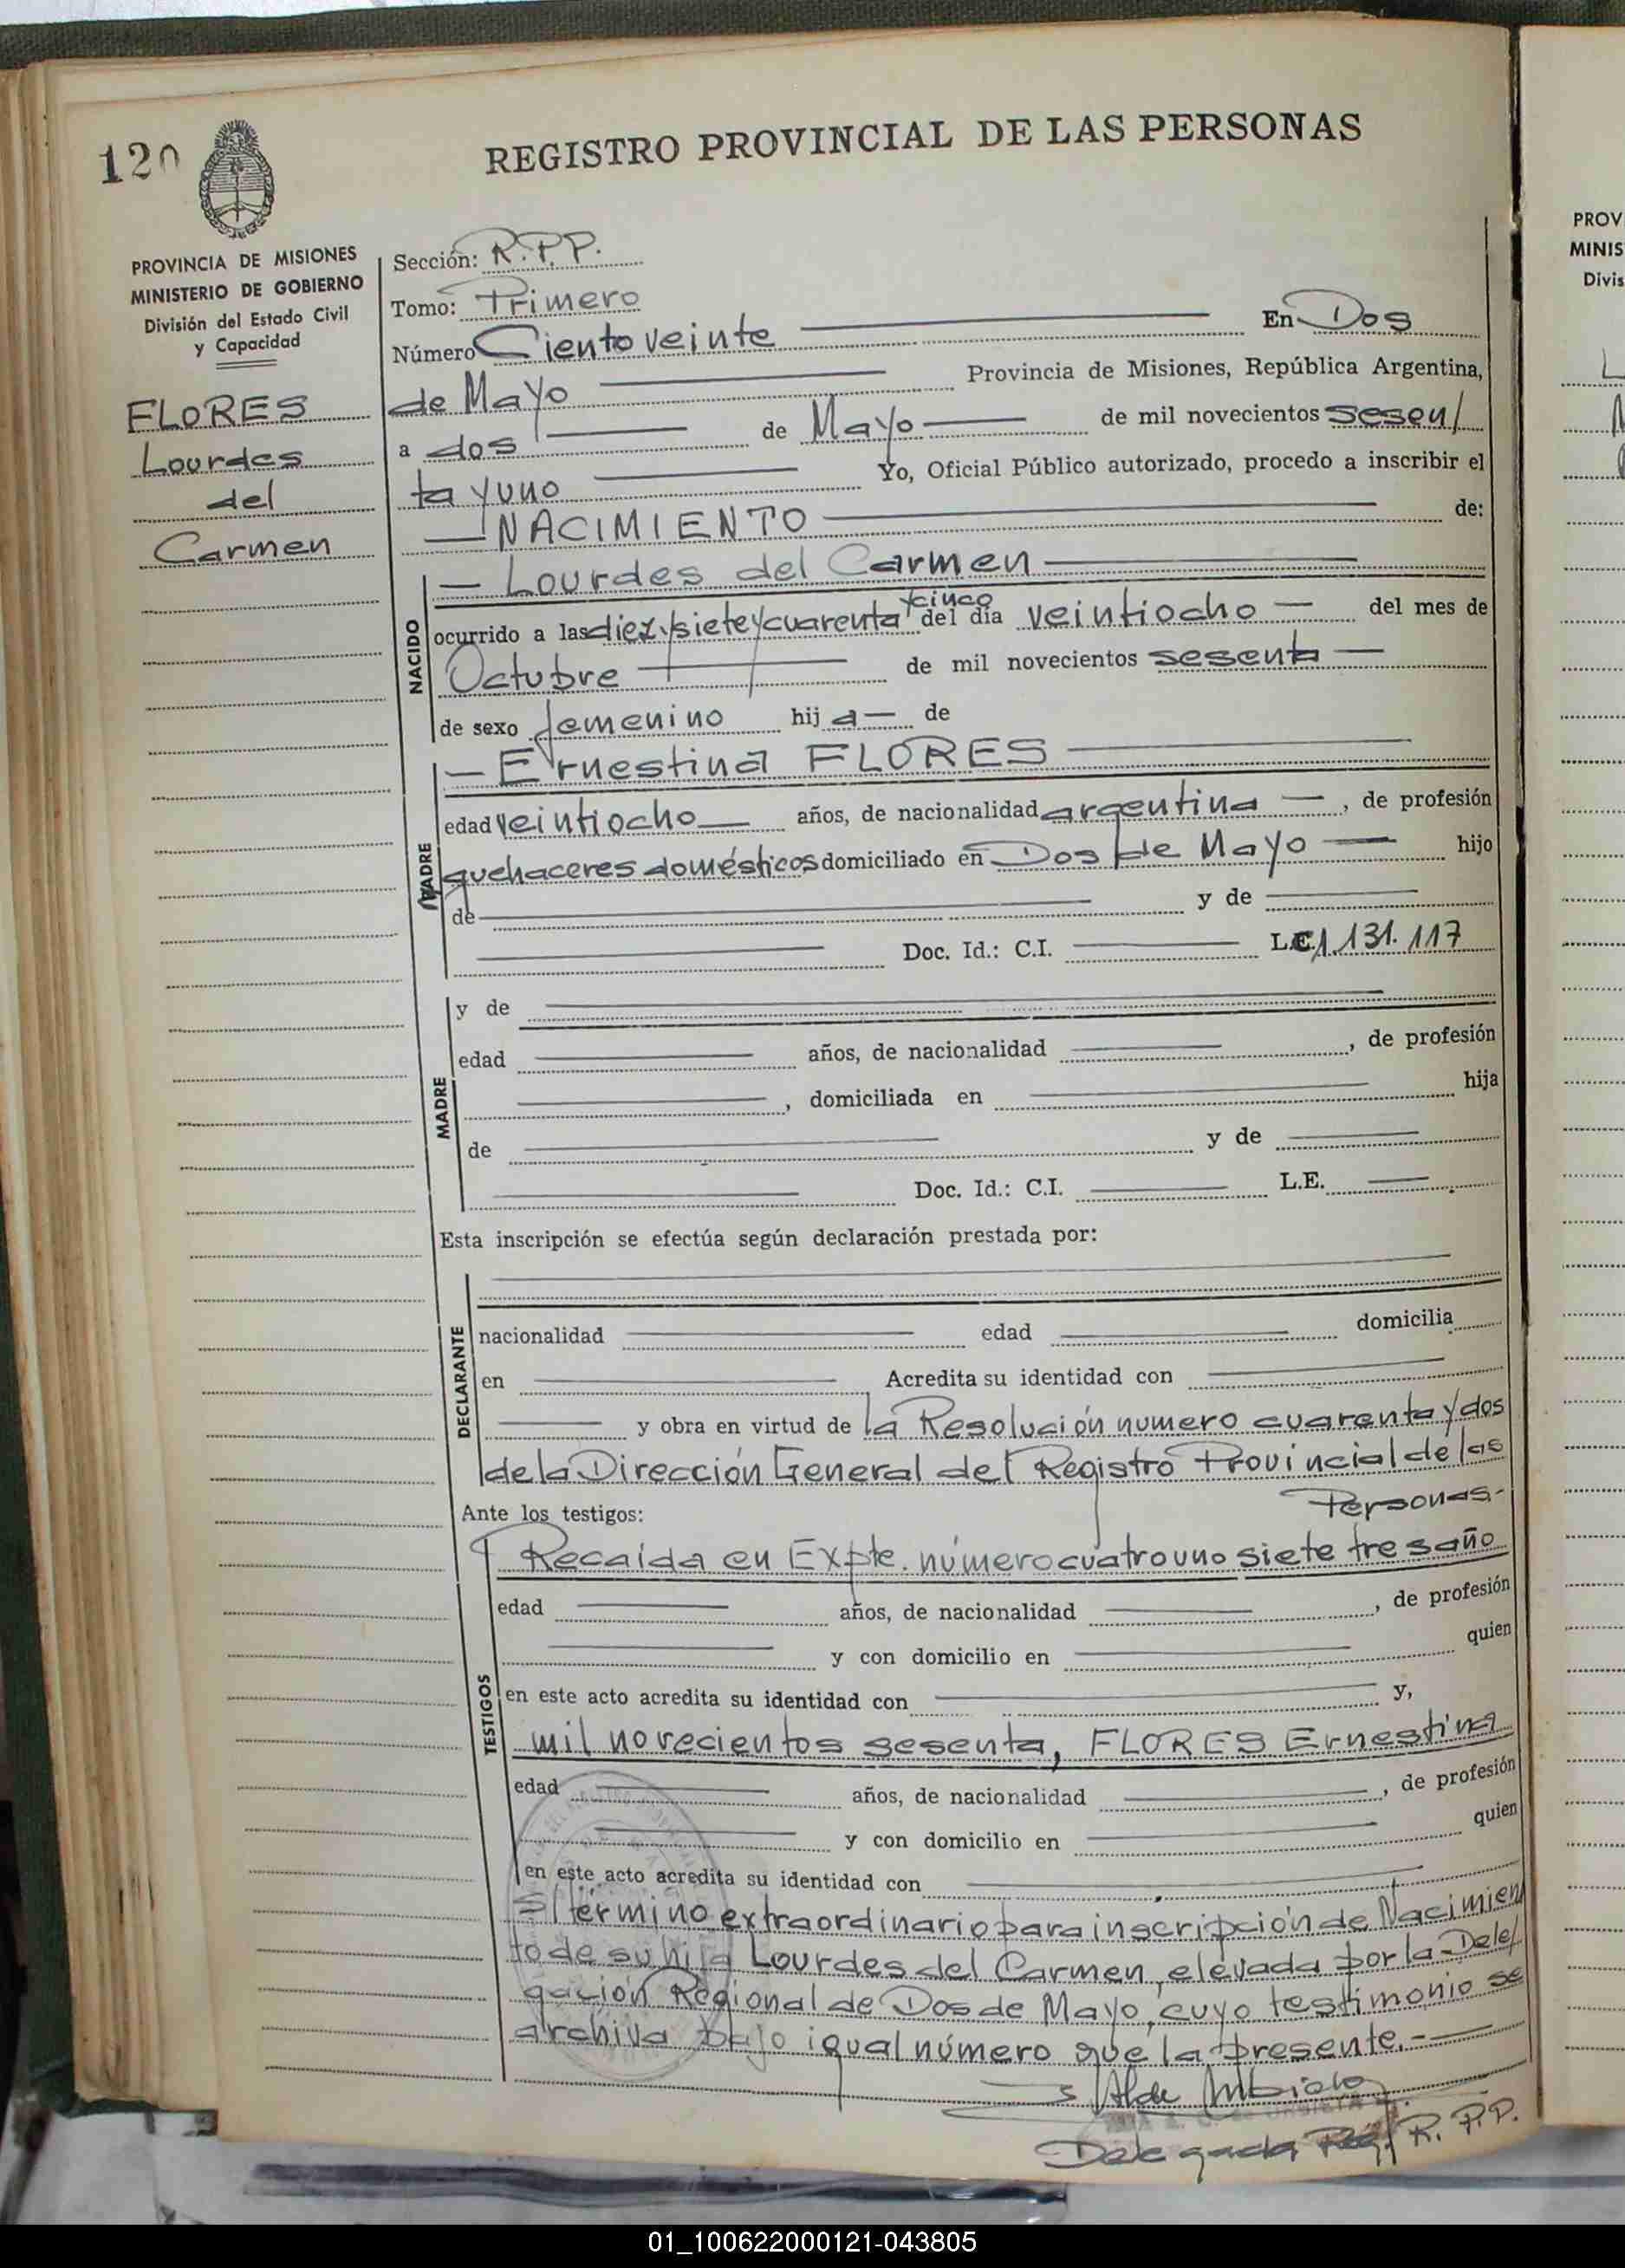 120
REGISTRO PROVINCIAL DE LAS PERSONAS
PROVINCIA DE MISIONES
MINISTERIO DE GOBIERNO
División del Estado Civil
y Capacidad
FLORES
Lourdes
del
Carmen
Sección: R.P.P.
Tomo: Primero
Número Ciento veinte En Dos
de Mayo Provincia de Misiones, República Argentina,
a dos de Mayo de mil novecientos sesen/
ta y uno Yo, Oficial Público autorizado, procedo a inscribir el
NACIMIENTO de:
NACIDO
Lourdes del Carmen
y cinco
ocurrido a las diez y siete y cuarenta del día veintiocho del mes de
Octubre de mil novecientos sesenta
de sexo femenino hij a de
MADRE
Ernestina FLORES
edad veintiocho años, de nacionalidad argentina, de profesión
quehaceres domésticos domiciliado en Dos de Mayo hijo
de y de
Doc. Id.: C.I. L.C. 1.131.117
MADRE
y de
edad años, de nacionalidad , de profesión
, domiciliada en hija
de y de
Doc. Id.: C.I. L.E.
Esta inscripción se efectúa según declaración prestada por:
DECLARANTE
nacionalidad edad domicilia
en Acredita su identidad con
y obra en virtud de la Resolución numero cuarenta y dos
de la Dirección General del Registro Provincial de las
Personas-
Ante los testigos:
TESTIGOS
Recaída en Expte. número cuatro uno siete tres año
edad años, de nacionalidad , de profesión
y con domicilio en quien
en este acto acredita su identidad con y,
mil novecientos sesenta, FLORES Ernestina
edad años, de nacionalidad , de profesión
y con domicilio en quien
en este acto acredita su identidad con
S/término extraordinario para inscripción de Nacimien
to de su hija Lourdes del Carmen, elevada por la Dele/
gación Regional de Dos de Mayo, cuyo testimonio se
archiva bajo igual número que la presente.-
Delegada Reg. R.P.P.
PROV
MINIS
Divis
01_100622000121-043805